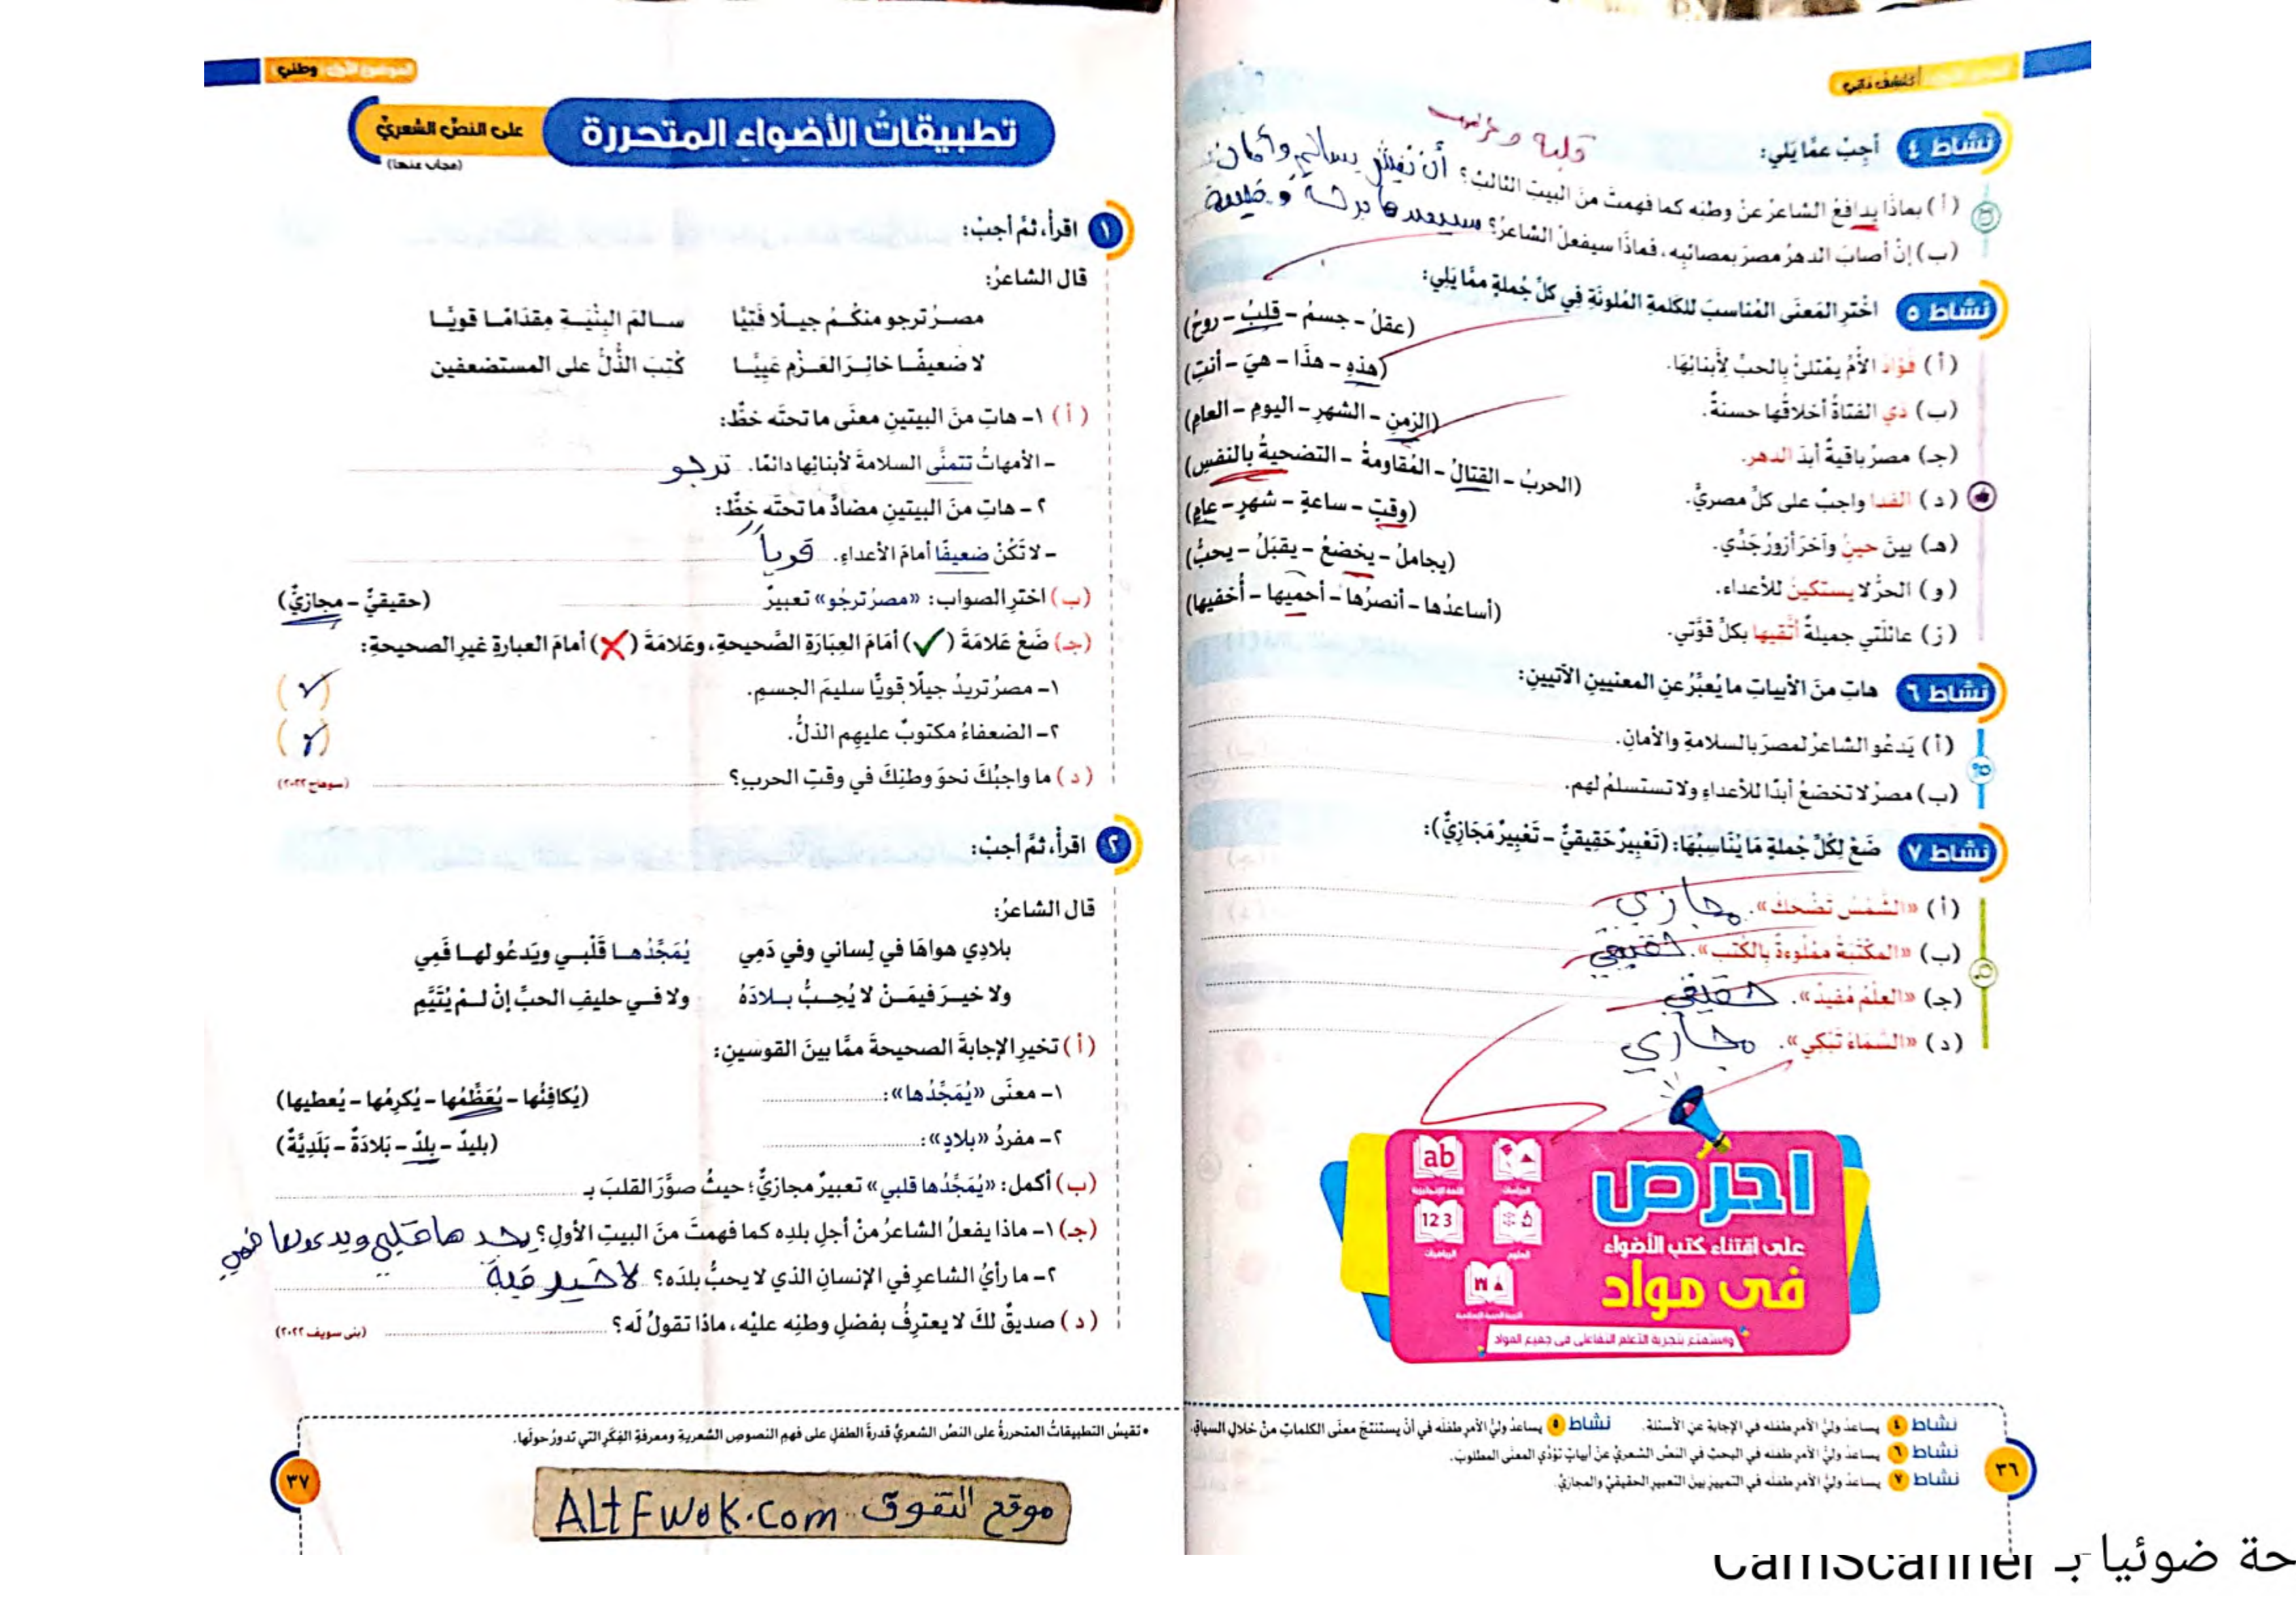 أكتشف ذاتي
نشاط ٤ أجِبْ عمَّا يَلي:
قلبه و
(أ) بماذَا يدافعُ الشاعرُ عنْ وطنِه كما فهمتَ منَ البيتِ الثالثِ؟ أن نعيش بسالم وأمان
(ب) إنْ أصابَ الدهرُ مصرَ بمصائبِه، فماذَا سيفعلُ الشاعرُ؟
نشاط ٥ اخْترِ المَعنَى المُناسبَ للكلمةِ المُلونَةِ فِي كلِّ جُملةٍ ممَّا يَلِي:
(أ) فُؤادُ الأُمِّ يمْتلئُ بِالحبِّ لأبنائِهَا. (عقلُ – جسمُ – قلبُ – روحُ)
(ب) ذي الفتاةُ أخلاقُها حسنةٌ. (هذهِ – هذَا – هيَ – أنتِ)
(جـ) مصرُ باقيةٌ أبدَ الدهرِ. (الزمنِ – الشهرِ – اليومِ – العامِ)
(د) الفدا واجبٌ على كلِّ مصريٍّ. (الحربُ – القتالُ – المُقاومةُ – التضحيةُ بالنفسِ)
(هـ) بينَ حينٍ وآخرَ أزورُ جَدِّي. (وقتٍ – ساعةٍ – شهرٍ – عامٍ)
(و) الحرُّ لا يستكينُ للأعداءِ. (يجاملُ – يخضعُ – يقبَلُ – يحبُّ)
(ز) عائلَتي جميلةٌ أتَّقيها بكلِّ قوَّتي. (أساعدُها – أنصرُها – أحميها – أخفيها)
نشاط ٦ هاتِ منَ الأبياتِ ما يُعبِّرُ عنِ المعنيينِ الآتيينِ:
(أ) يَدعُو الشاعرُ لمصرَ بالسلامةِ والأمانِ.
(ب) مصرُ لا تخضعُ أبدًا للأعداءِ ولا تستسلمُ لهم.
نشاط ٧ ضَعْ لِكلِّ جُملةٍ مَا يُنَاسِبُهَا: (تَعْبِيرٌ حَقِيقيٌّ – تَعْبِيرٌ مَجَازِيٌّ):
(أ) «الشَّمْسُ تَضْحَكُ». مجازي
(ب) «المكْتَبَةُ ممْلُوءةٌ بِالكُتُبِ». حقيقي
(جـ) «العِلْمُ مُفيدٌ». حقيقي
(د) «السَّمَاءُ تَبْكِي». مجازي
احرص
على اقتناء كتب الأضواء
فى مواد
ab
123
واستمتع بتجربة التعلم التفاعلى فى جميع المواد
نشاط ٤ يساعدُ وليُّ الأمرِ طفلَه في الإجابةِ عنِ الأسئلةِ. نشاط ٥ يساعدُ وليُّ الأمرِ طفلَه في أنْ يستنتجَ معنَى الكلماتِ منْ خلالِ السياقِ.
نشاط ٦ يساعدُ وليُّ الأمرِ طفلَه في البحثِ في النصِّ الشعريِّ عنْ أبياتٍ تؤدِّي المعنَى المطلوبَ.
نشاط ٧ يساعدُ وليُّ الأمرِ طفلَه في التمييزِ بينَ التعبيرِ الحقيقيِّ والمجازيِّ.
٣٦
الموضوع الأول وطني
تطبيقاتُ الأضواء المتحررة على النصِّ الشعريِّ
(مجاب عنها)
١ اقرأْ، ثمَّ أجبْ:
قال الشاعرُ:
مصـرُ ترجو منكُـمُ جيـلًا فَتِيًّا سـالمَ البِنْيَـةِ مِقدَامًـا قويًّـا
لا ضَعيفًـا خائِـرَ العَـزْمِ عَيِيًّـا كُتِبَ الذُّلُّ على المستضعفين
(أ) ١- هاتِ منَ البيتينِ معنَى ما تحتَه خطٌّ:
– الأمهاتُ تتمنَّى السلامةَ لأبنائِها دائمًا. ترجو
٢- هاتِ منَ البيتينِ مضادَّ ما تحتَه خطٌّ:
– لا تَكُنْ ضعيفًا أمامَ الأعداءِ. قوياً
(ب) اخترِ الصوابَ: «مصرُ ترجُو» تعبيرٌ (حقيقيٌّ – مجازيٌّ)
(جـ) ضَعْ عَلامَةَ (✓) أمَامَ العِبَارَةِ الصَّحيحةِ، وعَلامَةَ (✗) أمامَ العبارةِ غيرِ الصحيحةِ:
١- مصرُ تريدُ جيلًا قويًّا سليمَ الجسمِ. (✓)
٢- الضعفاءُ مكتوبٌ عليهِم الذلُّ. (✓)
(د) ما واجبُكَ نحوَ وطنِكَ في وقتِ الحربِ؟ (سوهاج ٢٠٢٢)
٢ اقرأْ، ثمَّ أجبْ:
قال الشاعرُ:
بلادِي هواهَا في لِساني وفي دَمِي يُمَجِّدُهـا قَلْبـي ويَدعُو لهـا فَمِي
ولا خيـرَ فيمَـنْ لا يُحِـبُّ بـلادَهُ ولا فـي حليفِ الحبِّ إنْ لـمْ يُتَيَّمِ
(أ) تخيرِ الإجابةَ الصحيحةَ ممَّا بينَ القوسينِ:
١- معنَى «يُمَجِّدُها»: (يُكافِئُها – يُعَظِّمُها – يُكرِمُها – يُعطيها)
٢- مفردُ «بلادٍ»: (بليدٌ – بلدٌ – بَلادَةٌ – بَلَدِيَّةٌ)
(ب) أكمل: «يُمَجِّدُها قلبي» تعبيرٌ مجازيٌّ؛ حيثُ صوَّرَ القلبَ بـ
(جـ) ١- ماذا يفعلُ الشاعرُ منْ أجلِ بلدِه كما فهمتَ منَ البيتِ الأولِ؟ يمجدها قلبي ويدعولها فمي
٢- ما رأيُ الشاعرِ في الإنسانِ الذي لا يحبُّ بلدَه؟ لا خير فيه
(د) صديقٌ لكَ لا يعترِفُ بفضلِ وطنِه عليْه، ماذا تقولُ لَه؟ (بني سويف ٢٠٢٢)
• تقيسُ التطبيقاتُ المتحررةُ على النصِّ الشعريِّ قدرةَ الطفلِ على فهمِ النصوصِ الشعريةِ ومعرفةِ الفِكَرِ التي تدورُ حولَها.
٣٧
موقع التفوق ALtFwoK.com
حة ضوئيا بـ CamScanner